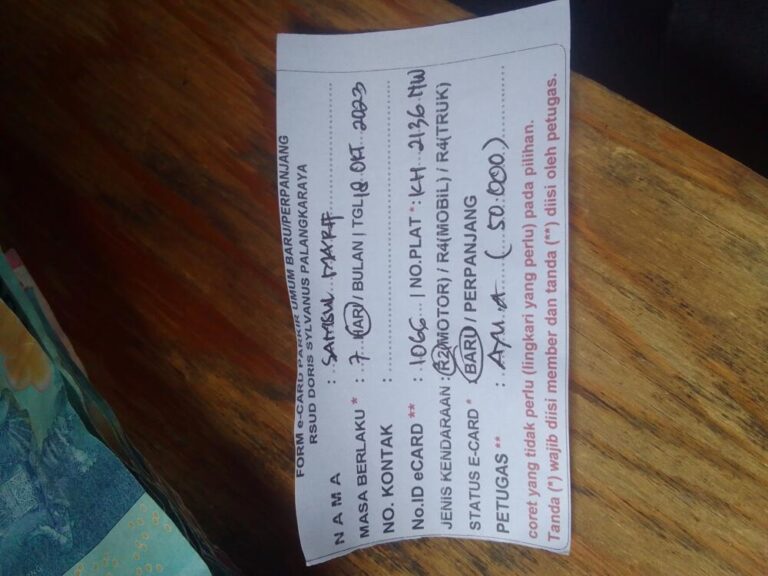 FORM e-CARD PARKIR UMUM BARU/PERPANJANG
RSUD DORIS SYLVANUS PALANGKARAYA
N A M A : SAMSUL MA'RIF
MASA BERLAKU * : 7 HARI / BULAN | TGL 18 OKT 2023
NO. KONTAK :
No.ID eCARD ** : 1066 | NO.PLAT * : KH 2136 MW
JENIS KENDARAAN : R2(MOTOR) / R4(MOBIL) / R4(TRUK)
STATUS E-CARD * : BARU / PERPANJANG
PETUGAS ** : (50.000)
coret yang tidak perlu (lingkari yang perlu) pada pilihan.
Tanda (*) wajib diisi member dan tanda (**) diisi oleh petugas.